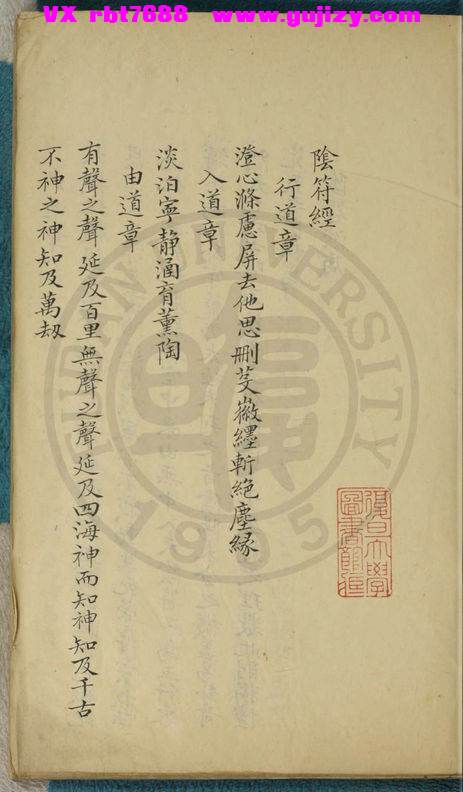 VX rbt7688 www.gujizy.com
陰符經
行道章
澄心滌慮屏去他思刪芟徽纆斬絕塵緣
入道章
淡泊寧靜涵育薰陶
由道章
有聲之聲延及百里無聲之聲延及四海神而知神知及千古
不神之神知及萬劫
復旦大學
圖書館
1905